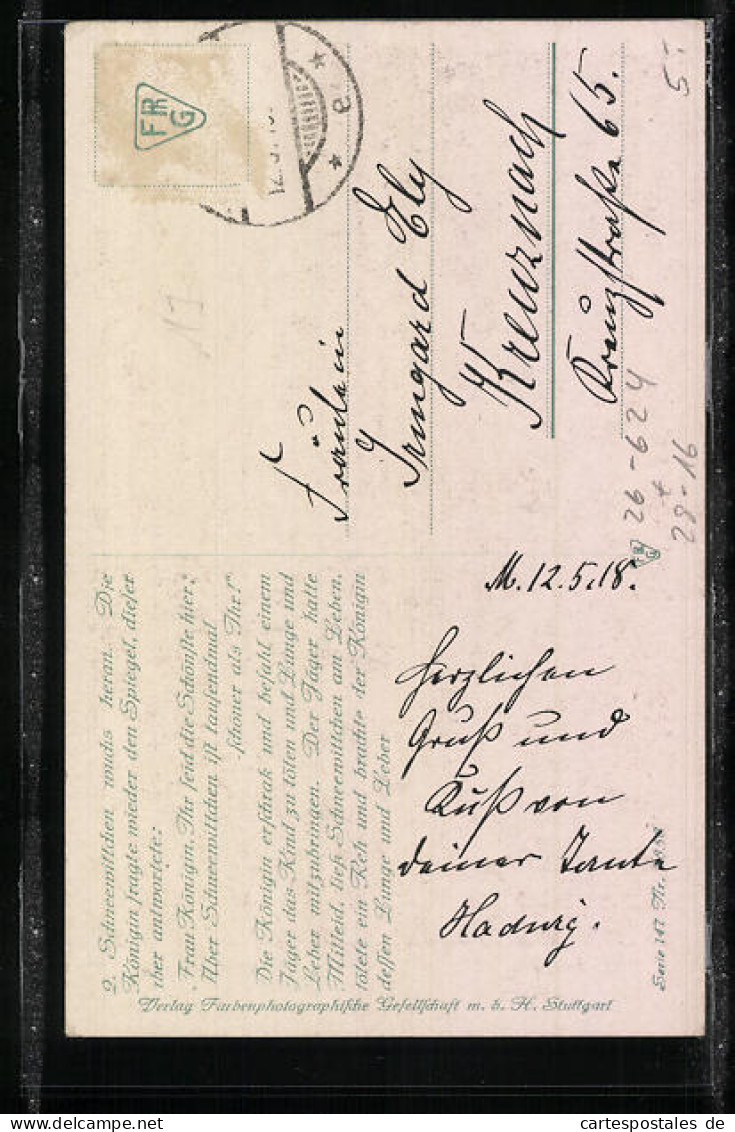 2. Schneewittchen wuchs heran. Die
Königin fragte wieder den Spiegel, dieser
aber antwortete:
"Frau Königin, Ihr seid die Schönste hier,
Aber Schneewittchen ist tausendmal
schöner als Ihr!"
Die Königin erschrak und befahl einem
Jäger das Kind zu töten und Lunge und
Leber mitzubringen. Der Jäger hatte
Mitleid, ließ Schneewittchen am Leben,
tötete ein Reh und brachte der Königin
dessen Lunge und Leber
M. 12.5.18.
Herzlichen
Gruß und
Kuß von
deiner Tante
Hadwig.
Verlag Farbenphotographische Gesellschaft m. b. H. Stuttgart
Serie 167 Nr.
FPG
12.5.18
Fräulein
Irmgard Ely
Kreuznach
Kreuzstraße 65.
5.-
19
26-624
28-16
cartespostales de